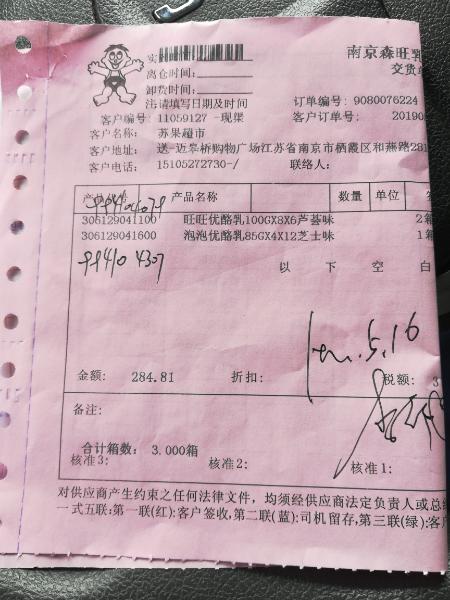 南京森旺乳
交货单
离仓时间:
卸货时间:
注:请填写日期及时间
订单编号: 9080076224
客户编号: 11059127 -现渠
客户订单号: 20190
客户名称: 苏果超市
客户地址: 送-迈皋桥购物广场江苏省南京市栖霞区和燕路281
客户电话: 15105272730-/ 联络人:
产品名称 数量 单位
306129041100 旺旺优酪乳100GX8X6芦荟味 2箱
306129041600 泡泡优酪乳85GX4X12芝士味 1箱
99410 4307
以 下 空 白
5.16
金额: 284.81 折扣: 税额: 3
备注:
合计箱数: 3.000箱
核准3: 核准2: 核准1:
对供应商产生约束之任何法律文件，均须经供应商法定负责人或总经
一式五联:第一联(红):客户签收,第二联(蓝):司机留存,第三联(绿):客户